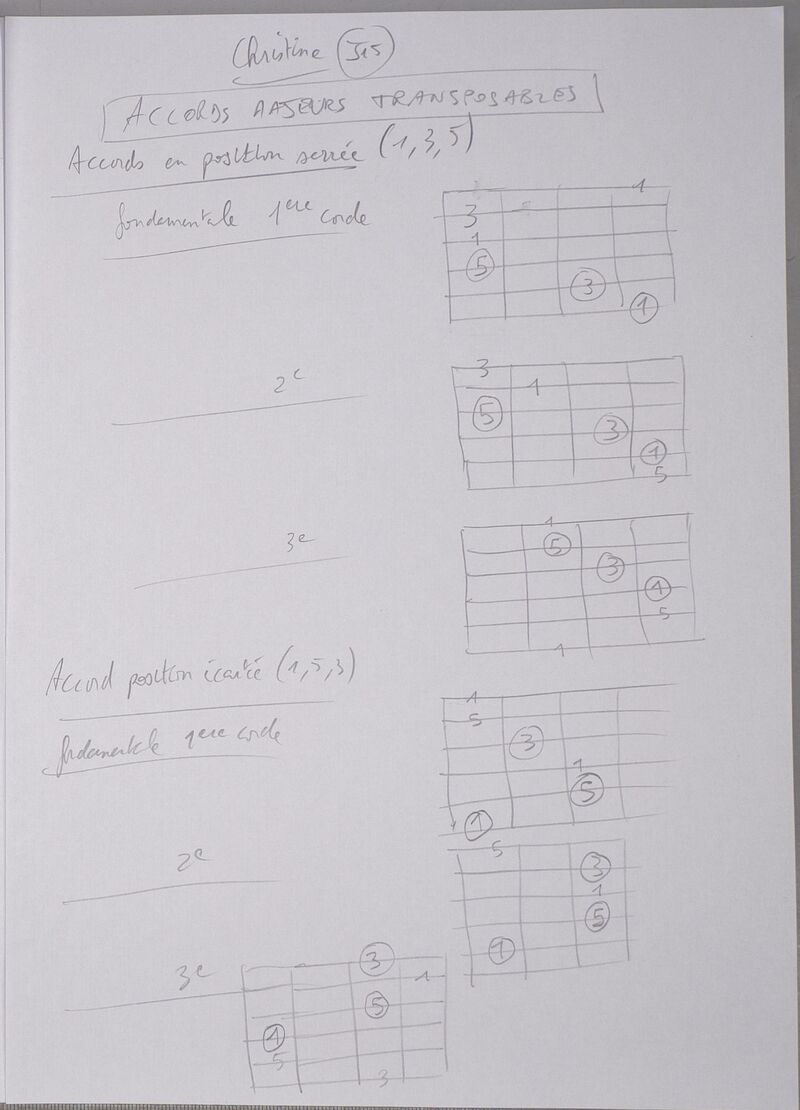 Christine J15
ACCORDS MAJEURS TRANSPOSABLES
Accords en position serrée (1,3,5)
fondamentale 1ere corde
1
3
1
5
3
1
2e
3
1
5
3
1
5
3e
1
5
3
1
5
1
Accord position écartée (1,5,3)
fondamentale 1ere corde
1
5
3
1
5
1
2e
5
3
1
5
1
3e
3
1
5
1
5
3